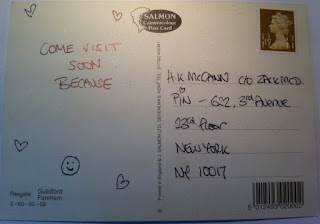 SALMON
Cameracolour
Post Card
COME VISIT
SOON
BECAUSE
A.K McCANN C/O ZACK MCD.
PiN - 622, 3rd Avenue
23rd floor
NEW YORK
NY 10017
Reigate Guildford
Farnham
2-60-36-09